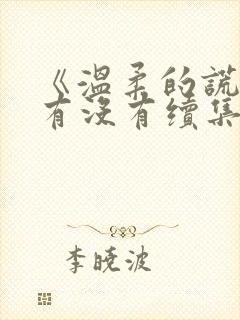 《温柔的谎
有没有续集
李晓波